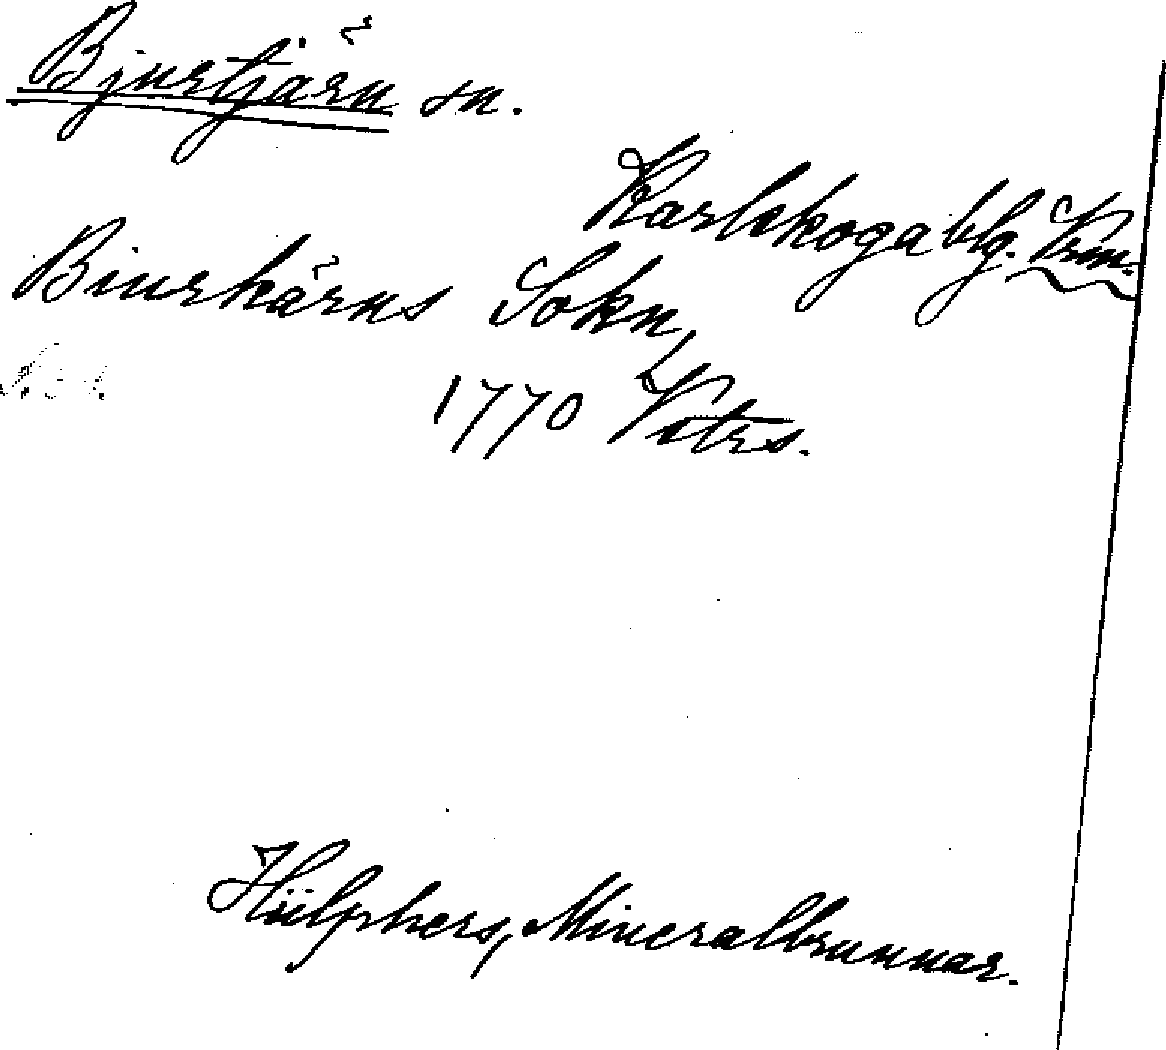 Bjurtjärn sn.
Karlskoga blg. Vrm.
Biurkärns Sokn,
1770 Vttrs.
Hülphers, Mineralbrunnar.